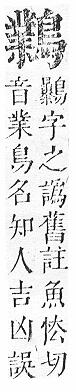 字之譌舊註魚怯切
音業鳥名知人吉凶誤